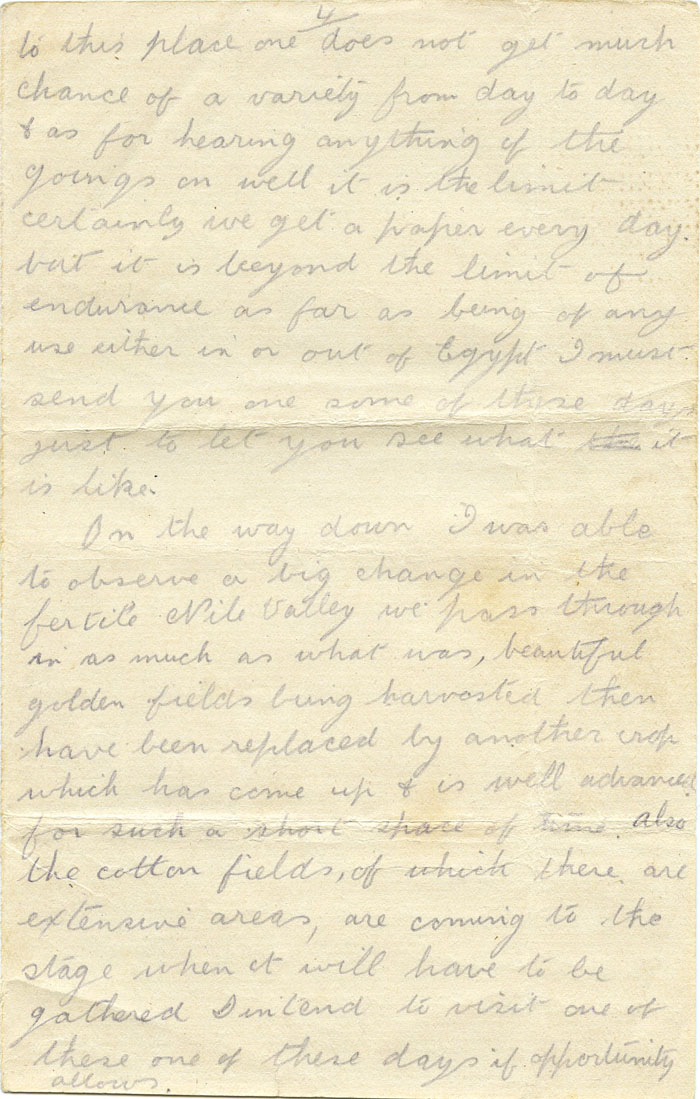 4/
to this place one does not get much
chance of a variety from day to day
& as for hearing anything of the
goings on well it is the limit
certainly we get a paper every day.
but it is beyond the limit of
endurance as far as being of any
use either in or out of Egypt I must
send you one some of these days
just to let you see what it
is like.
On the way down I was able
to observe a big change in the
fertile Nile Valley we pass through
in as much as what was, beautiful
golden fields being harvested then
have been replaced by another crop
which has come up & is well advanced
for such a short space of time also
the cotton fields, of which there are
extensive areas, are coming to the
stage when it will have to be
gathered I intend to visit one of
these one of these days if opportunity
allows.